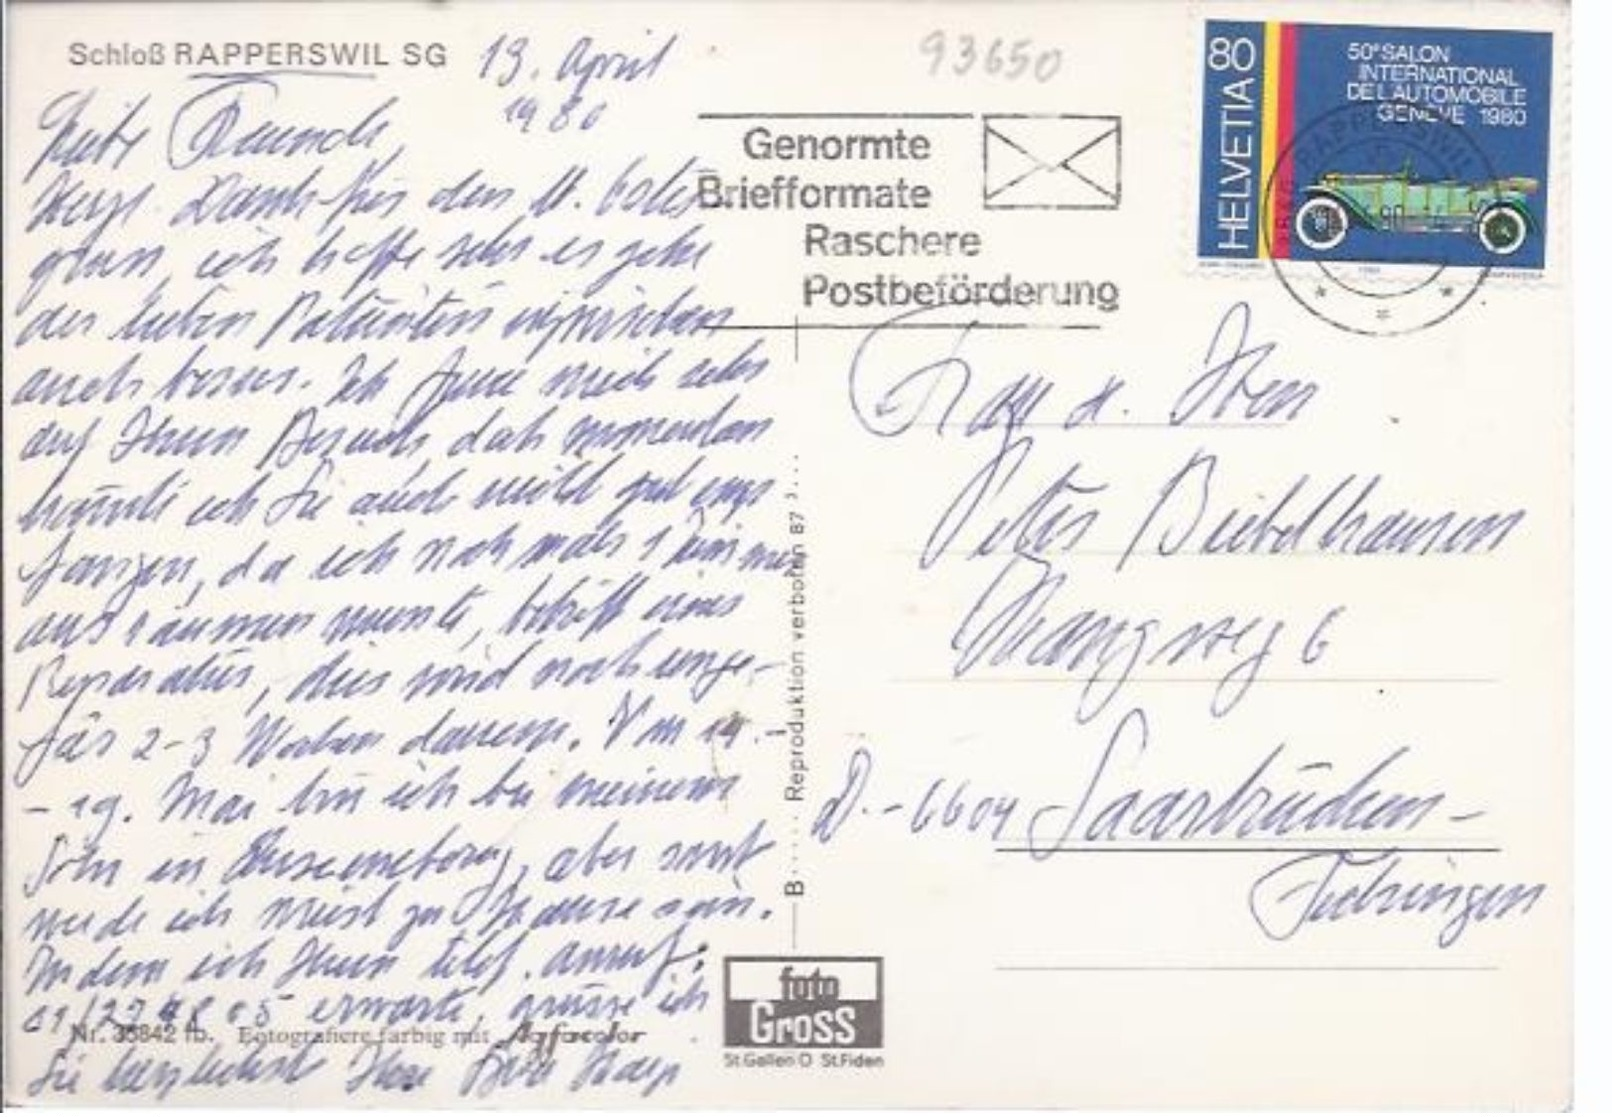 Schloß RAPPERSWIL SG
13. April
1980
Liebe Freunde,
Herzl. Dank für den lb. Oster-
gruss, ich hoffe sehr es gehe
der lieben Patientin inzwischen
auch besser. Ich freue mich sehr
auf Ihren Besuch, doch momentan
könnte ich Sie auch nicht gut emp-
fangen, da ich nochmals 1 Zimmer
ausräumen musste, betrifft einer
Reparatur, dies wird noch unge-
fähr 2-3 Wochen dauern. Vom 14.-
- 19. Mai bin ich bei meinem
Sohn in aber sonst
werde ich meist zu Hause sein.
Indem ich Ihren telef. Anruf:
erwarte, grüsse ich
Sie herzlichst Ihre
Nr. 38842 fb. Fotografiere farbig mit Agfacolor
93650
Genormte
Briefformate
Raschere
Postbeförderung
HELVETIA 80
50e SALON
INTERNATIONAL
DE L'AUTOMOBILE
GENÈVE 1980
RAPPERSWIL
Frau u. Herr
Peter Biebelhausen
6
D.- 6604 Saarbrücken-
Fechingen
B Reproduktion verboten 87
foto
Gross
St.Gallen O St.Fiden